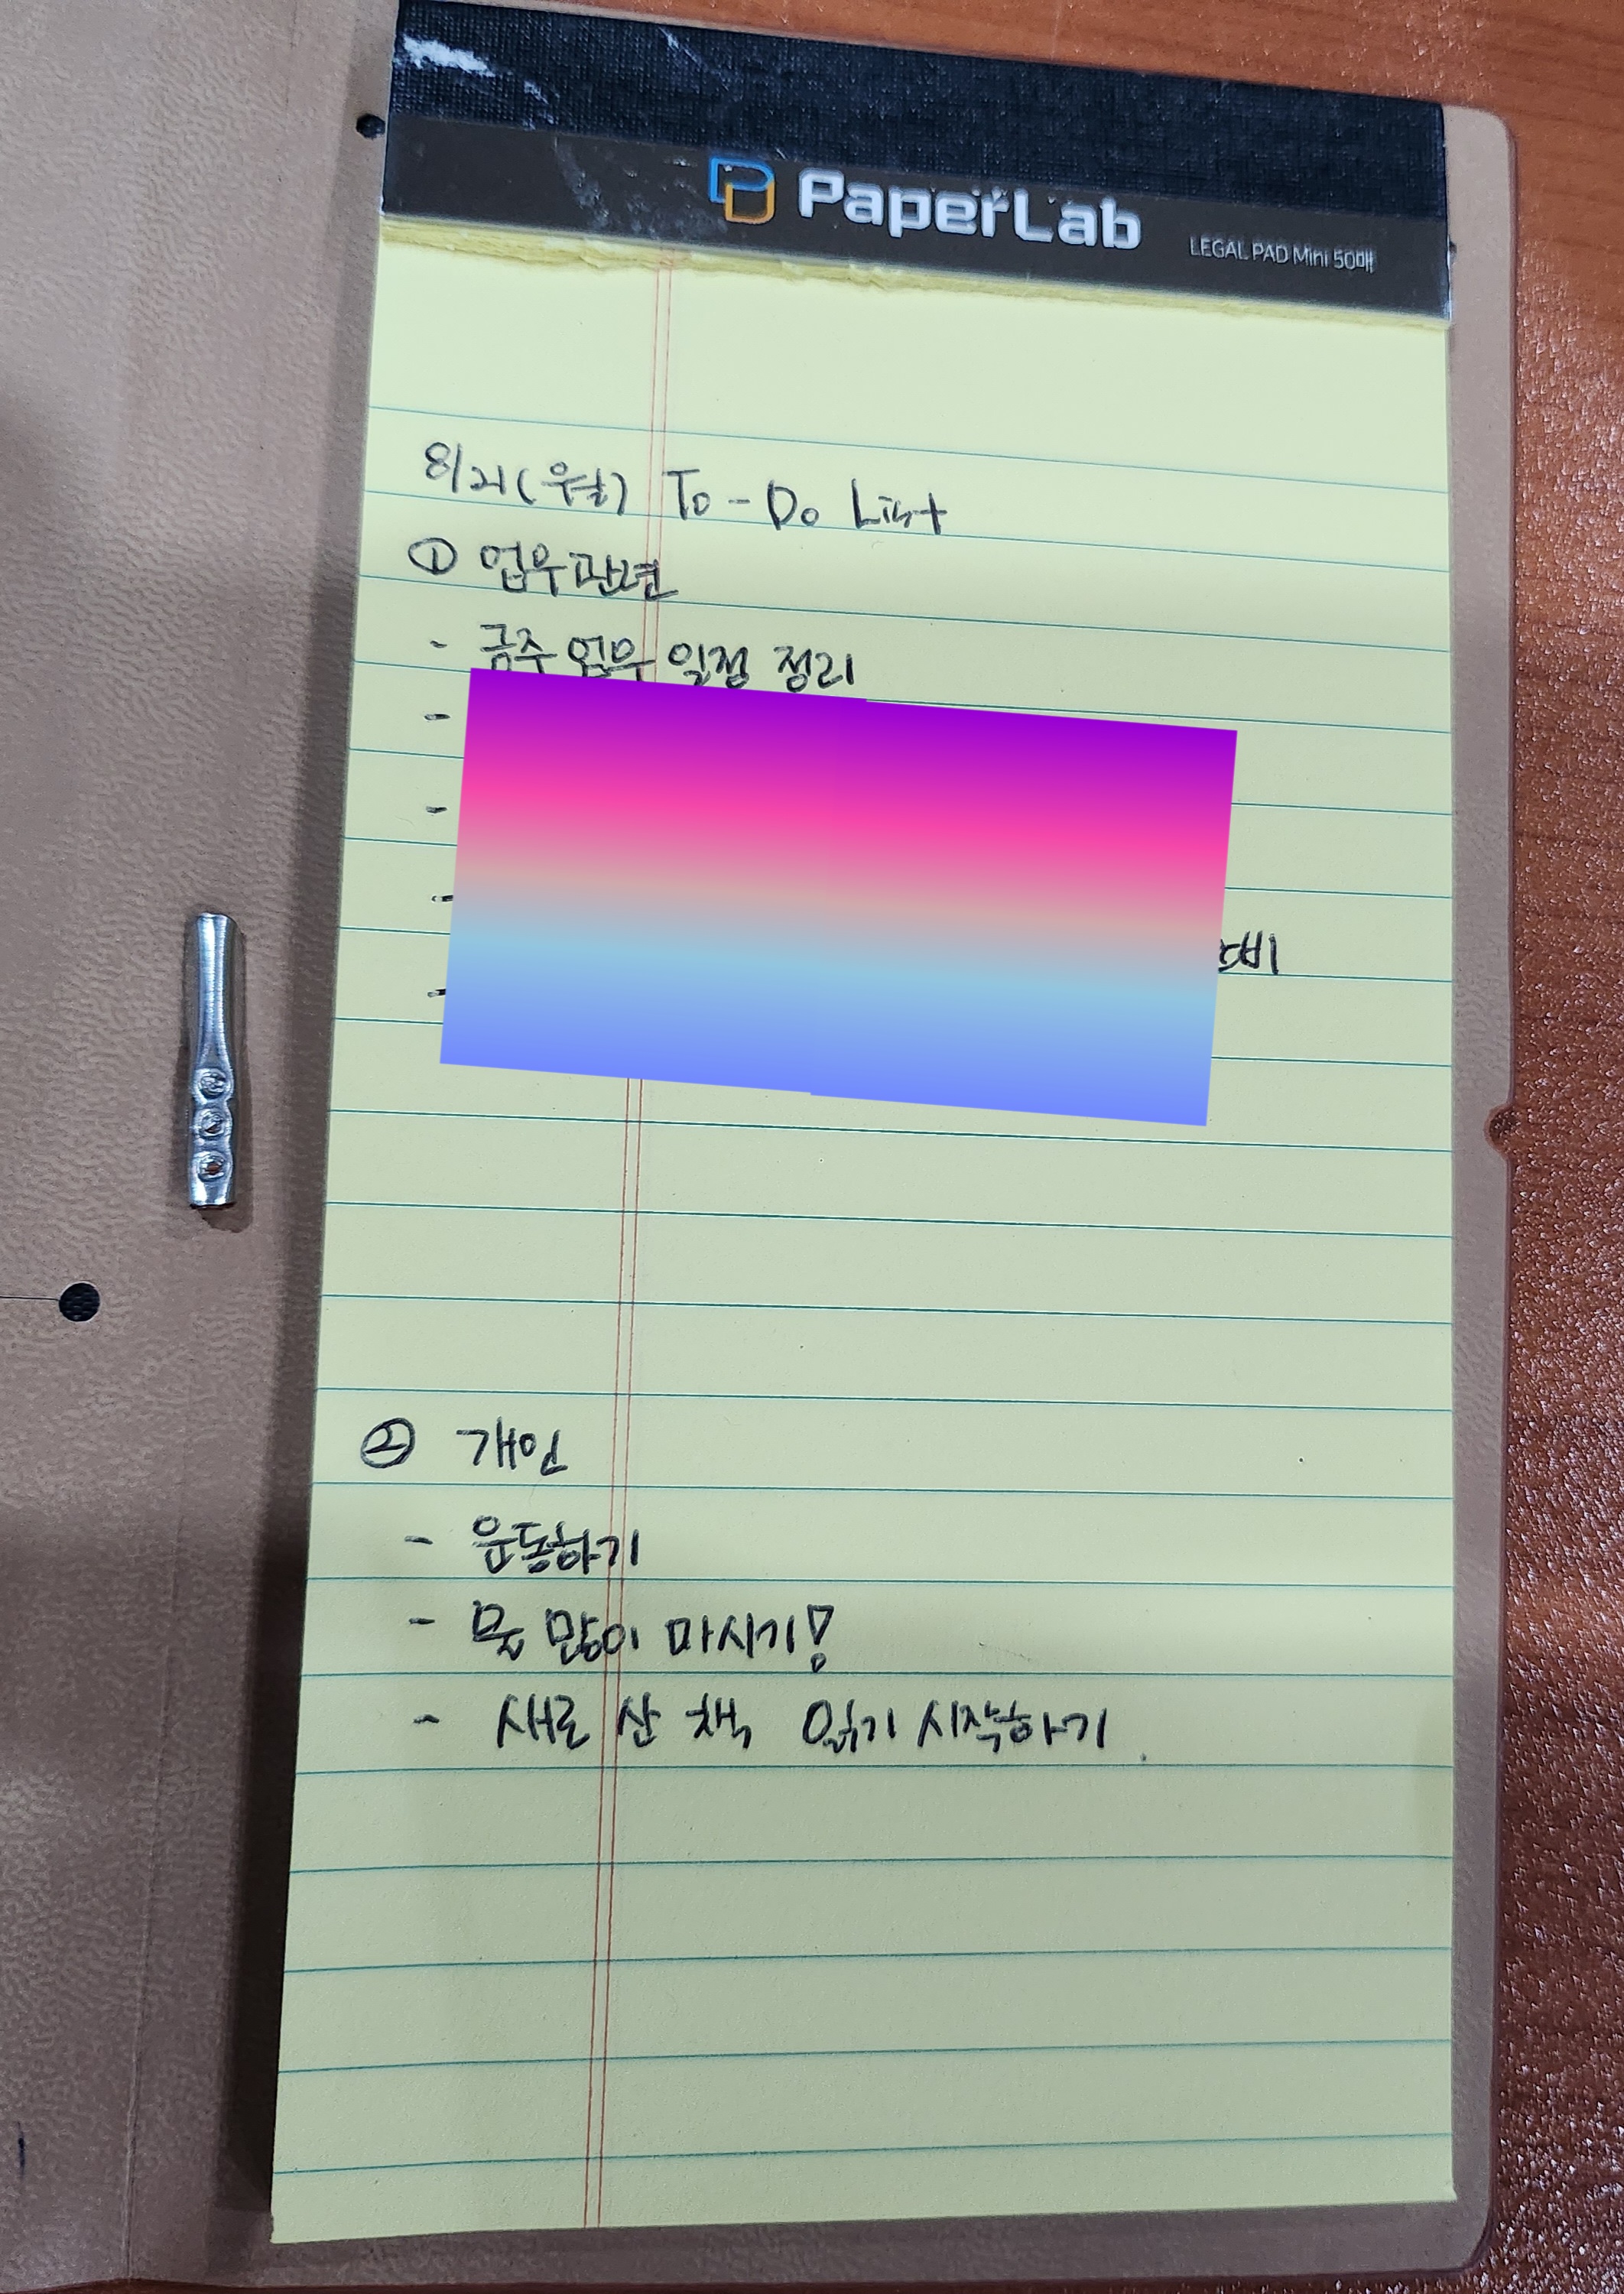 PaperLab
LEGAL PAD Mini 50매
8/21(월) To-Do List
① 업무관련
- 금주 업무 일정 정리
-
-
-
-
② 개인
- 운동하기
- 물 많이 마시기!
- 새로 산 책 읽기 시작하기.